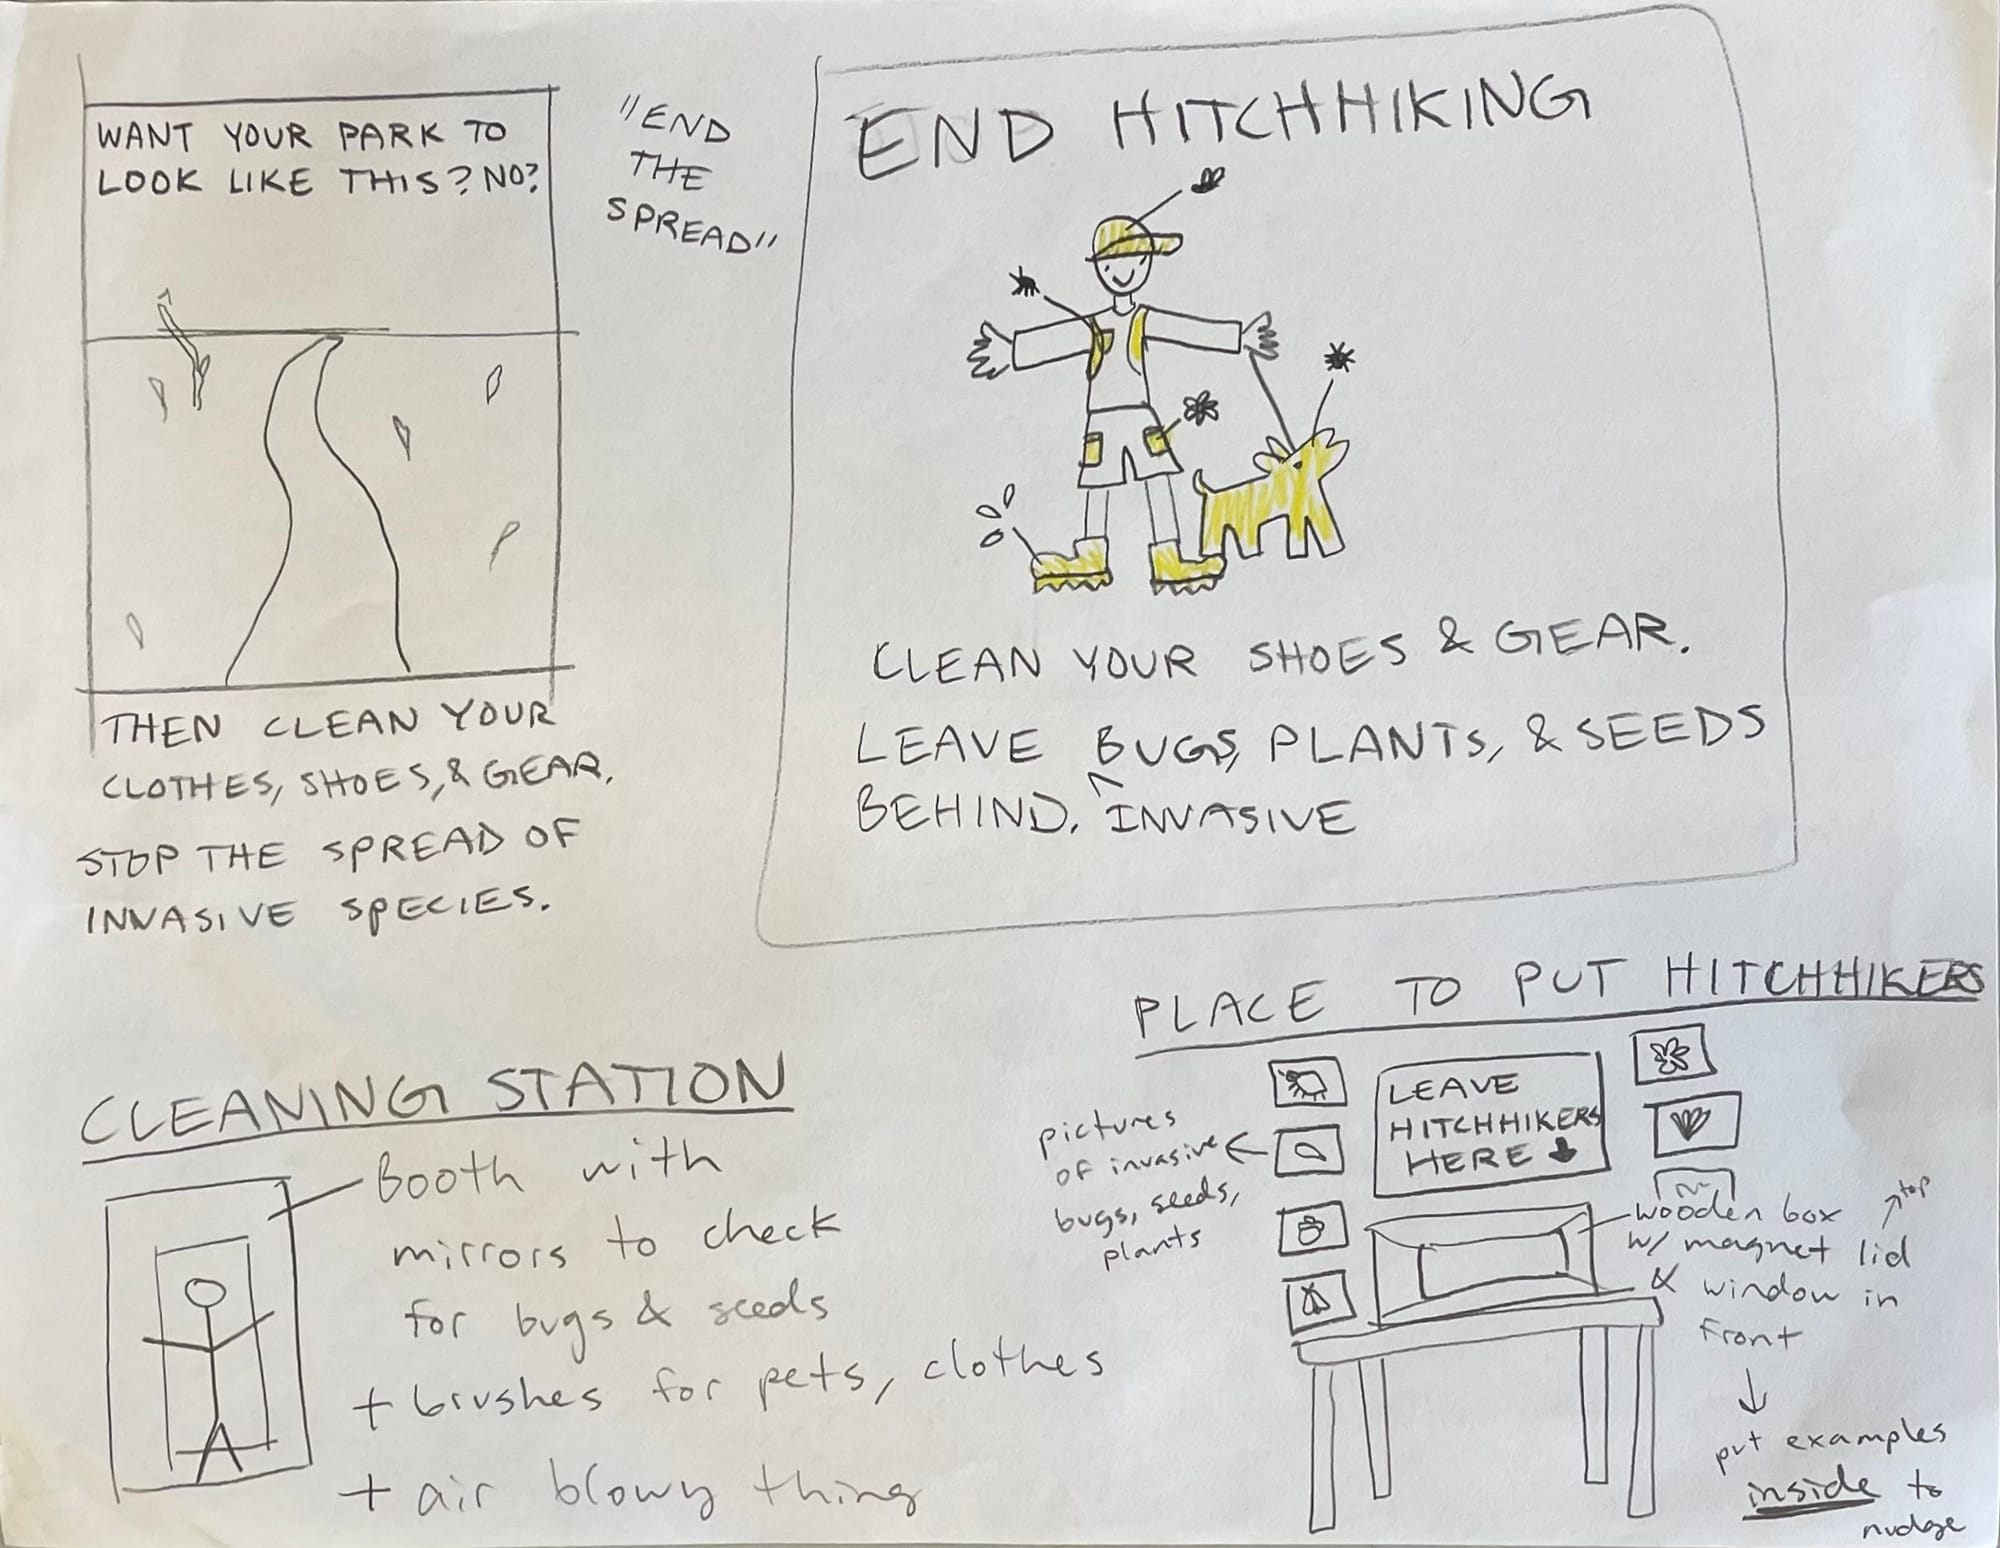 WANT YOUR PARK TO
LOOK LIKE THIS? NO?
THEN CLEAN YOUR
CLOTHES, SHOES, & GEAR.
STOP THE SPREAD OF
INVASIVE SPECIES.
"END
THE
SPREAD"
END HITCHHIKING
CLEAN YOUR SHOES & GEAR.
LEAVE BUGS, PLANTS, & SEEDS
BEHIND. ^ INVASIVE
CLEANING STATION
Booth with
mirrors to check
for bugs & seeds
+ brushes for pets, clothes
+ air blowy thing
PLACE TO PUT HITCHHIKERS
pictures
of invasive ←
bugs, seeds,
plants
LEAVE
HITCHHIKERS
HERE ↓
wooden box ↗ top
w/ magnet lid
& window in
front
↓
put examples
inside to
nudge